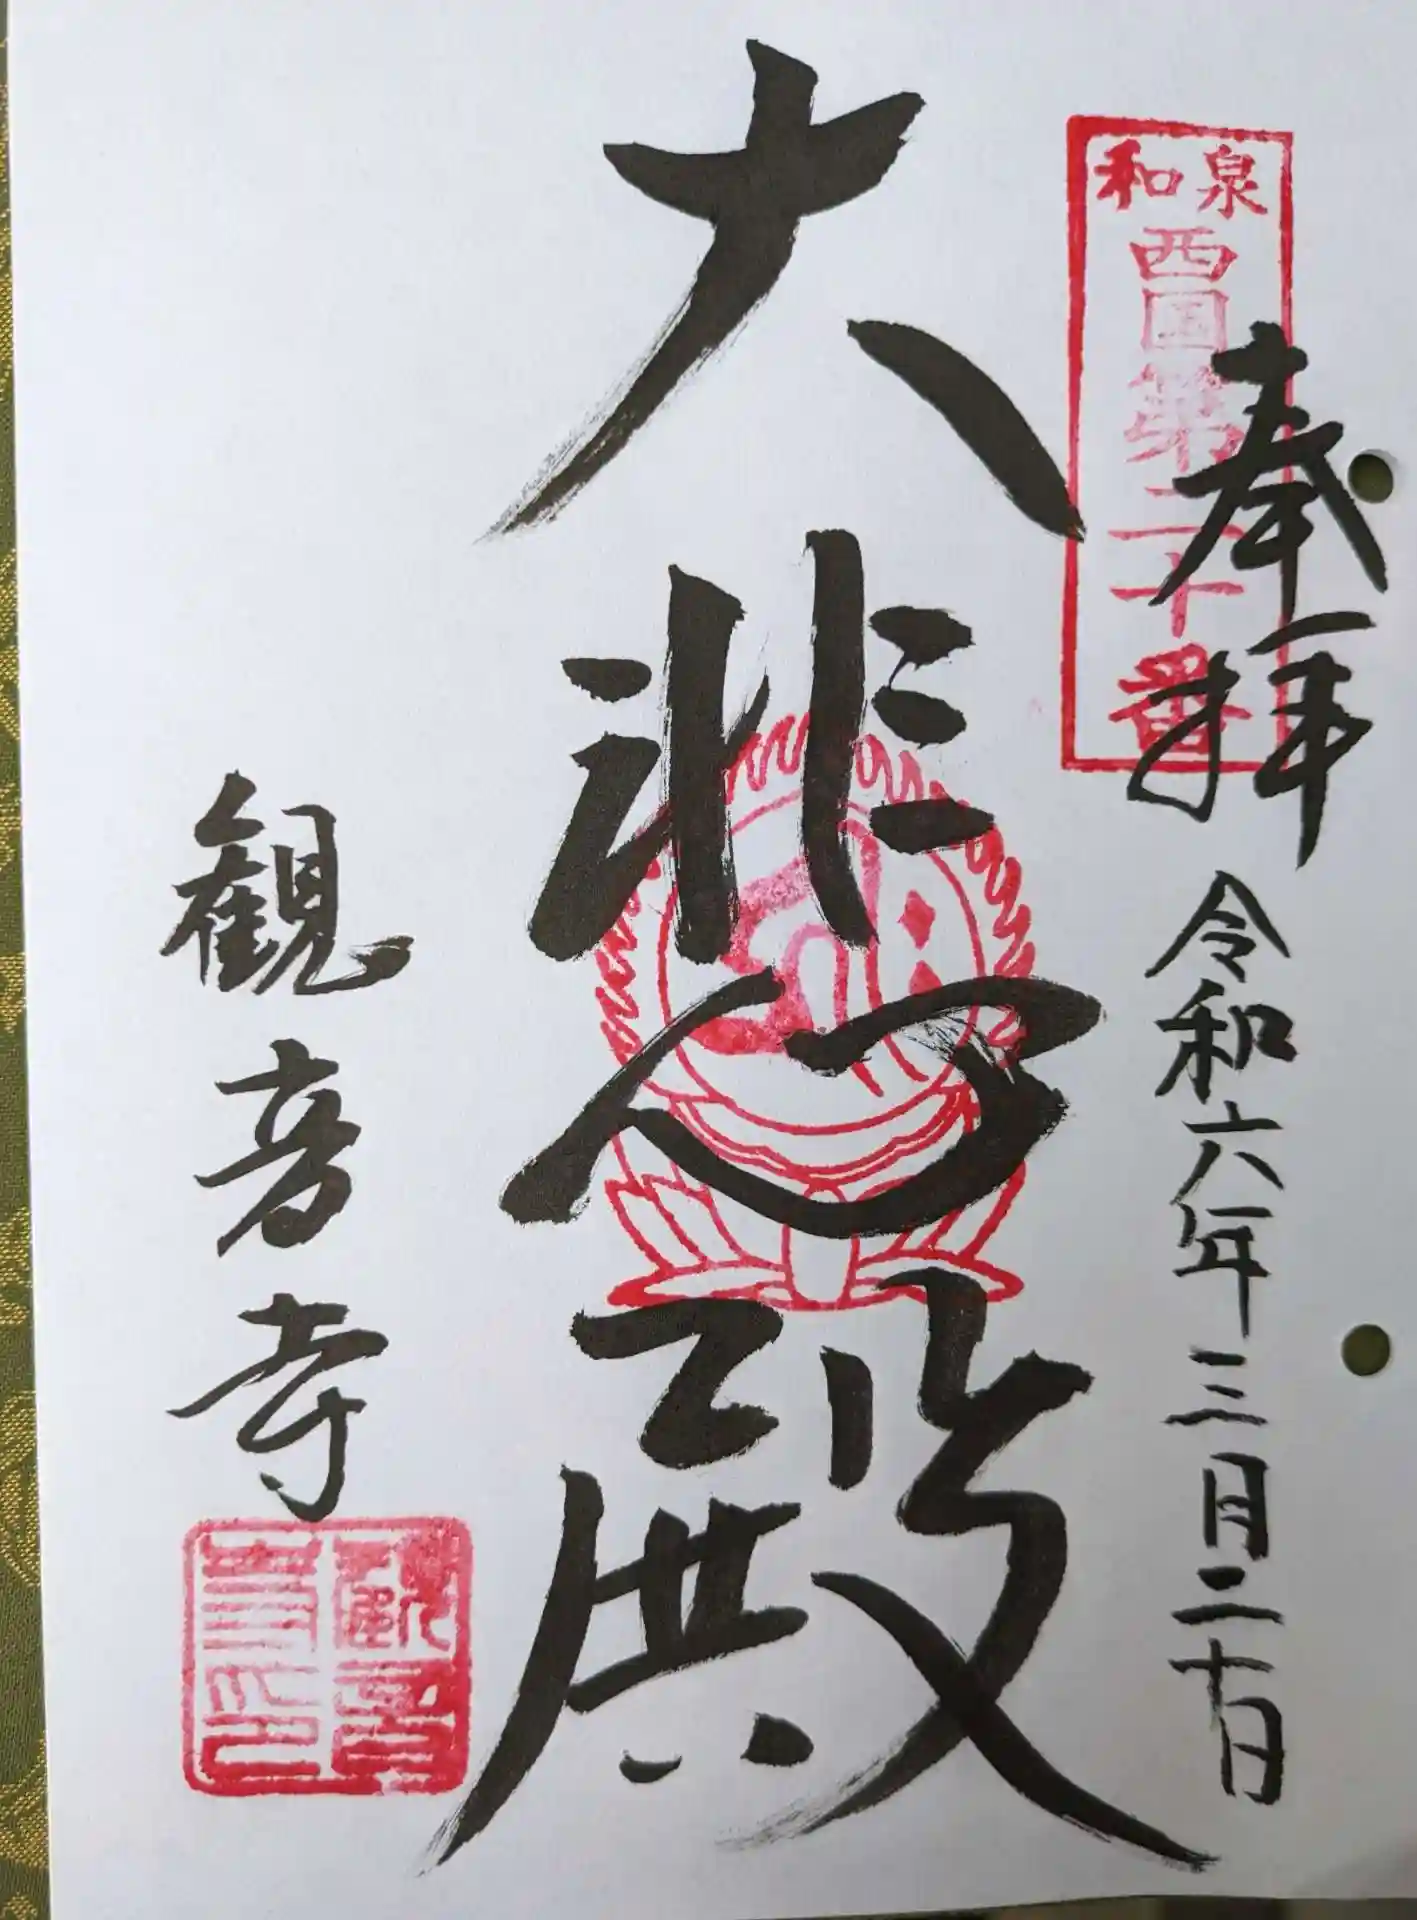 和泉
西国第二十番
奉拝
令和六年三月二十日
大悲殿
観音寺
観音
寺印